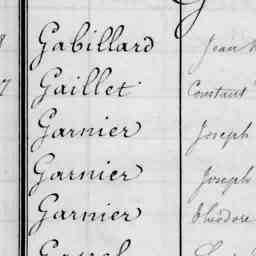 8 Gabillard Jean
7 Gaillet Constant
Garnier Joseph
Garnier Joseph
Garnier Théodore